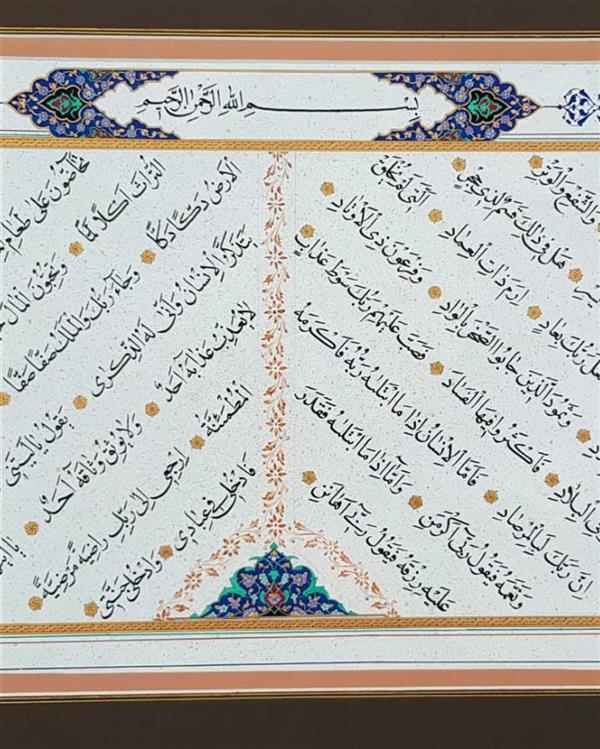 بِسْمِ اللهِ الرَّحْمٰنِ الرَّحِيمِ
وَالشَّفْعِ وَالْوَتْرِ
هَلْ فِي ذٰلِكَ قَسَمٌ لِذِي حِجْرٍ
رَبُّكَ بِعَادٍ إِرَمَ ذَاتِ الْعِمَادِ الَّتِي لَمْ يُخْلَقْ
وَثَمُودَ الَّذِينَ جَابُوا الصَّخْرَ بِالْوَادِ وَفِرْعَوْنَ ذِي الْأَوْتَادِ
الْبِلَادِ فَأَكْثَرُوا فِيهَا الْفَسَادَ فَصَبَّ عَلَيْهِمْ رَبُّكَ سَوْطَ عَذَابٍ
إِنَّ رَبَّكَ لَبِالْمِرْصَادِ فَأَمَّا الْإِنْسَانُ إِذَا مَا ابْتَلَاهُ رَبُّهُ فَأَكْرَمَهُ
وَنَعَّمَهُ فَيَقُولُ رَبِّي أَكْرَمَنِ وَأَمَّا إِذَا مَا ابْتَلَاهُ فَقَدَرَ
عَلَيْهِ رِزْقَهُ فَيَقُولُ رَبِّي أَهَانَنِ
تَحَاضُّونَ عَلَى طَعَامِ
التُّرَاثَ أَكْلًا لَمًّا وَتُحِبُّونَ الْمَالَ
الْأَرْضُ دَكًّا دَكًّا وَجَاءَ رَبُّكَ وَالْمَلَكُ صَفًّا صَفًّا
يَتَذَكَّرُ الْإِنْسَانُ وَأَنَّى لَهُ الذِّكْرَى يَقُولُ يَا لَيْتَنِي
لَا يُعَذِّبُ عَذَابَهُ أَحَدٌ وَلَا يُوثِقُ وَثَاقَهُ أَحَدٌ
الْمُطْمَئِنَّةُ ارْجِعِي إِلَى رَبِّكِ رَاضِيَةً مَرْضِيَّةً
فَادْخُلِي فِي عِبَادِي وَادْخُلِي جَنَّتِي